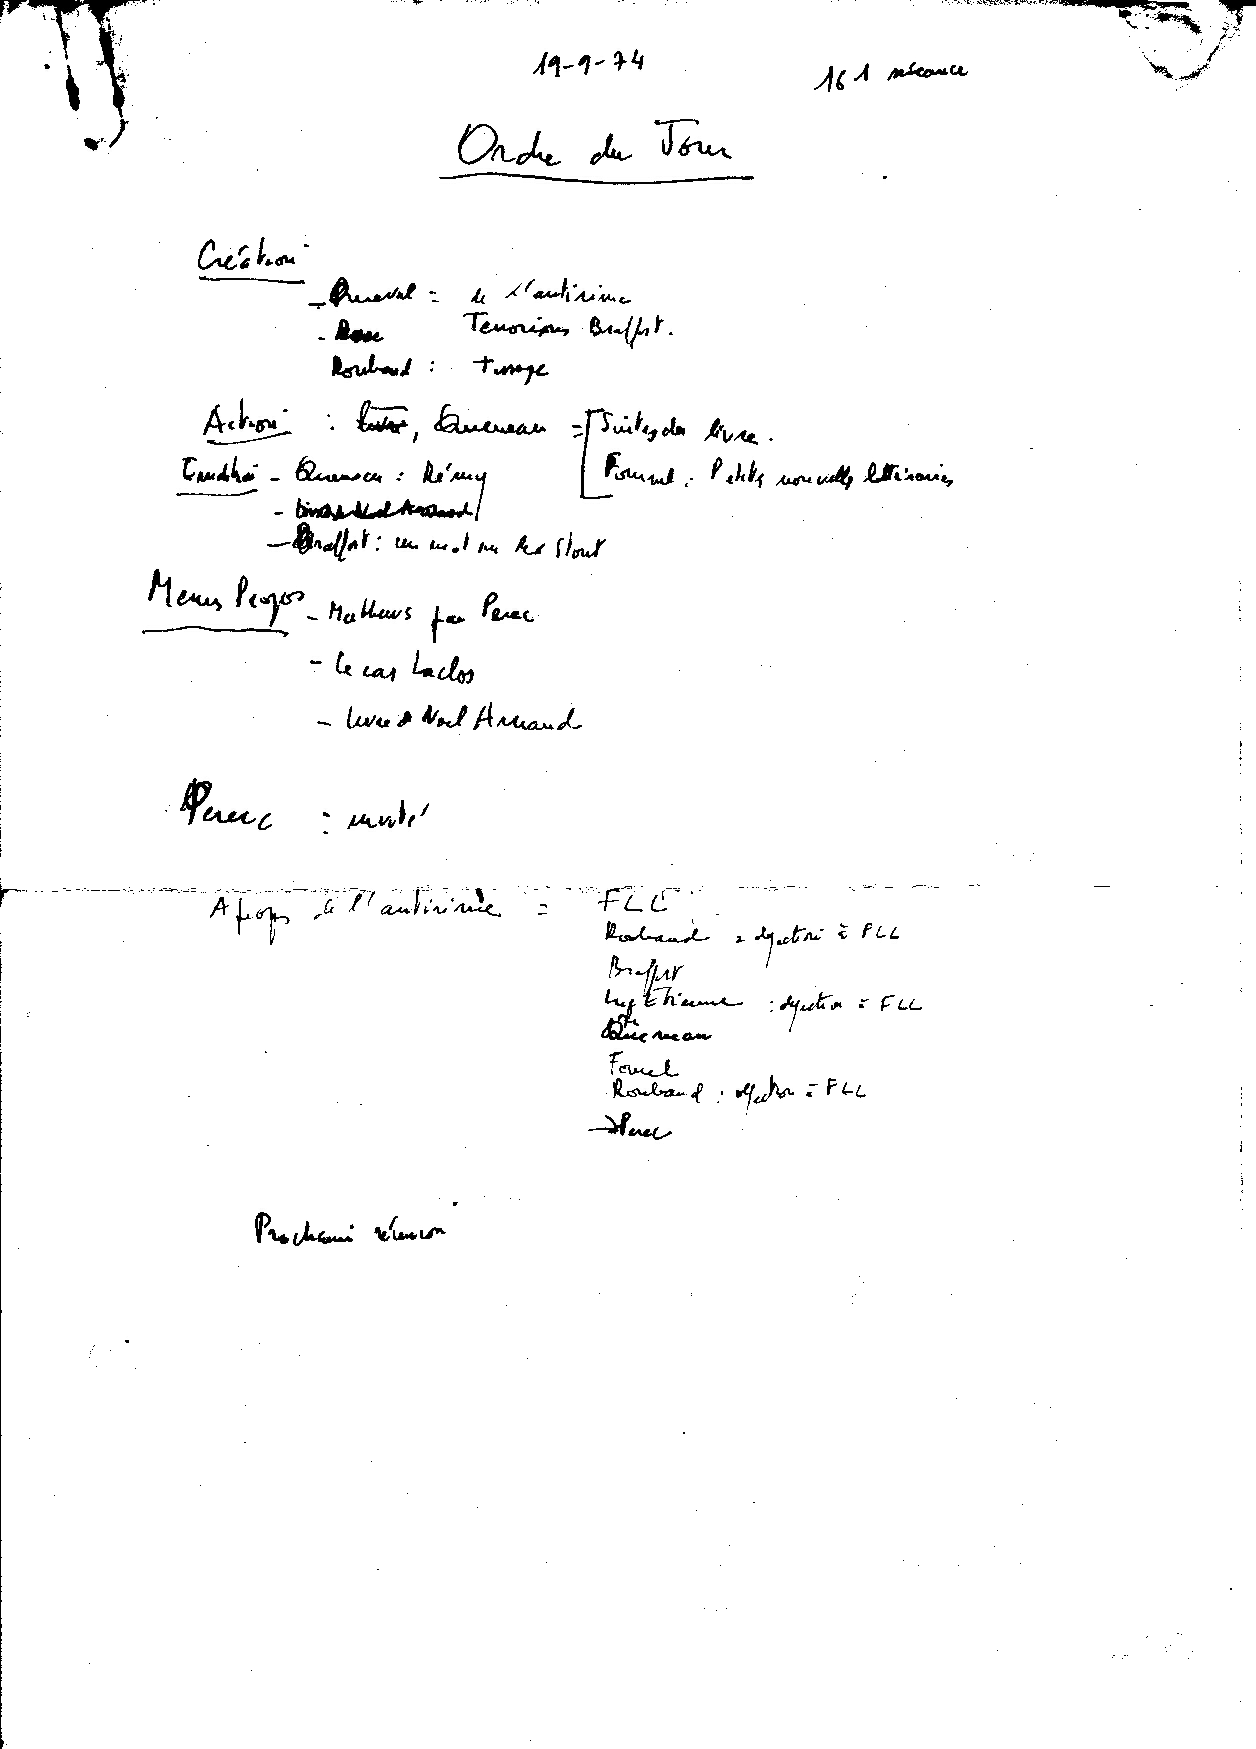 19-9-74
161 séance
Ordre du Jour
Création
- Queval = de l'antirime
- Tenorions Braffort.
Roubaud : tirage
Action : Queneau = Suites du livre.
Erudition - Queneau : Rémy
Fournel : Petites nouvelles littéraires
- Livre de Noël Arnaud
- Braffort : un mot sur Rex Stout
Menus Propos - Mathews par Perec
- le cas Laclos
- livre de Noël Arnaud
Perec : invité
A propos de l'antirimie = FLL
Roubaud : objection à FLL
Braffort
Luc Etienne : objection à FLL
Queneau
Fournel
Roubaud : objection à FLL
→ Perec
Prochaine réunion